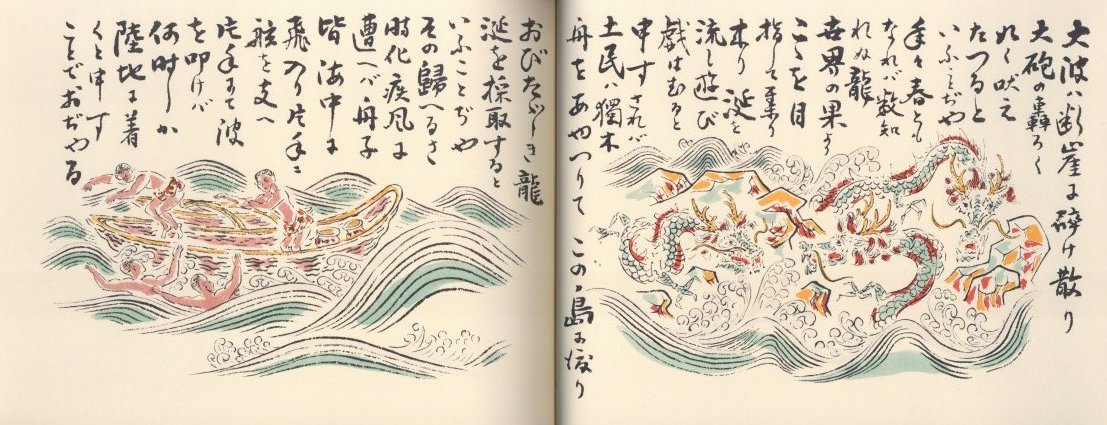 大波ハ断崖に砕け散り
大砲の轟ろく
如く吠え
たつると
いふことぢや
年々春とも
なれバ数知
れぬ龍
世界の果より
ここを目
指して集り
来り 涎を
流し遊び
戯はむると
申す されバ
土民ハ獨木
舟をあやつりて この島に渡り
おびたゞしき龍
涎を採取すると
いふことぢや
その歸へるさ
時化疾風に
遭へバ舟子
皆海中に
飛入り片手に
舷を支へ
片手にて波
を叩けバ
何時しか
陸地に着
くと申す
ことでおぢやる